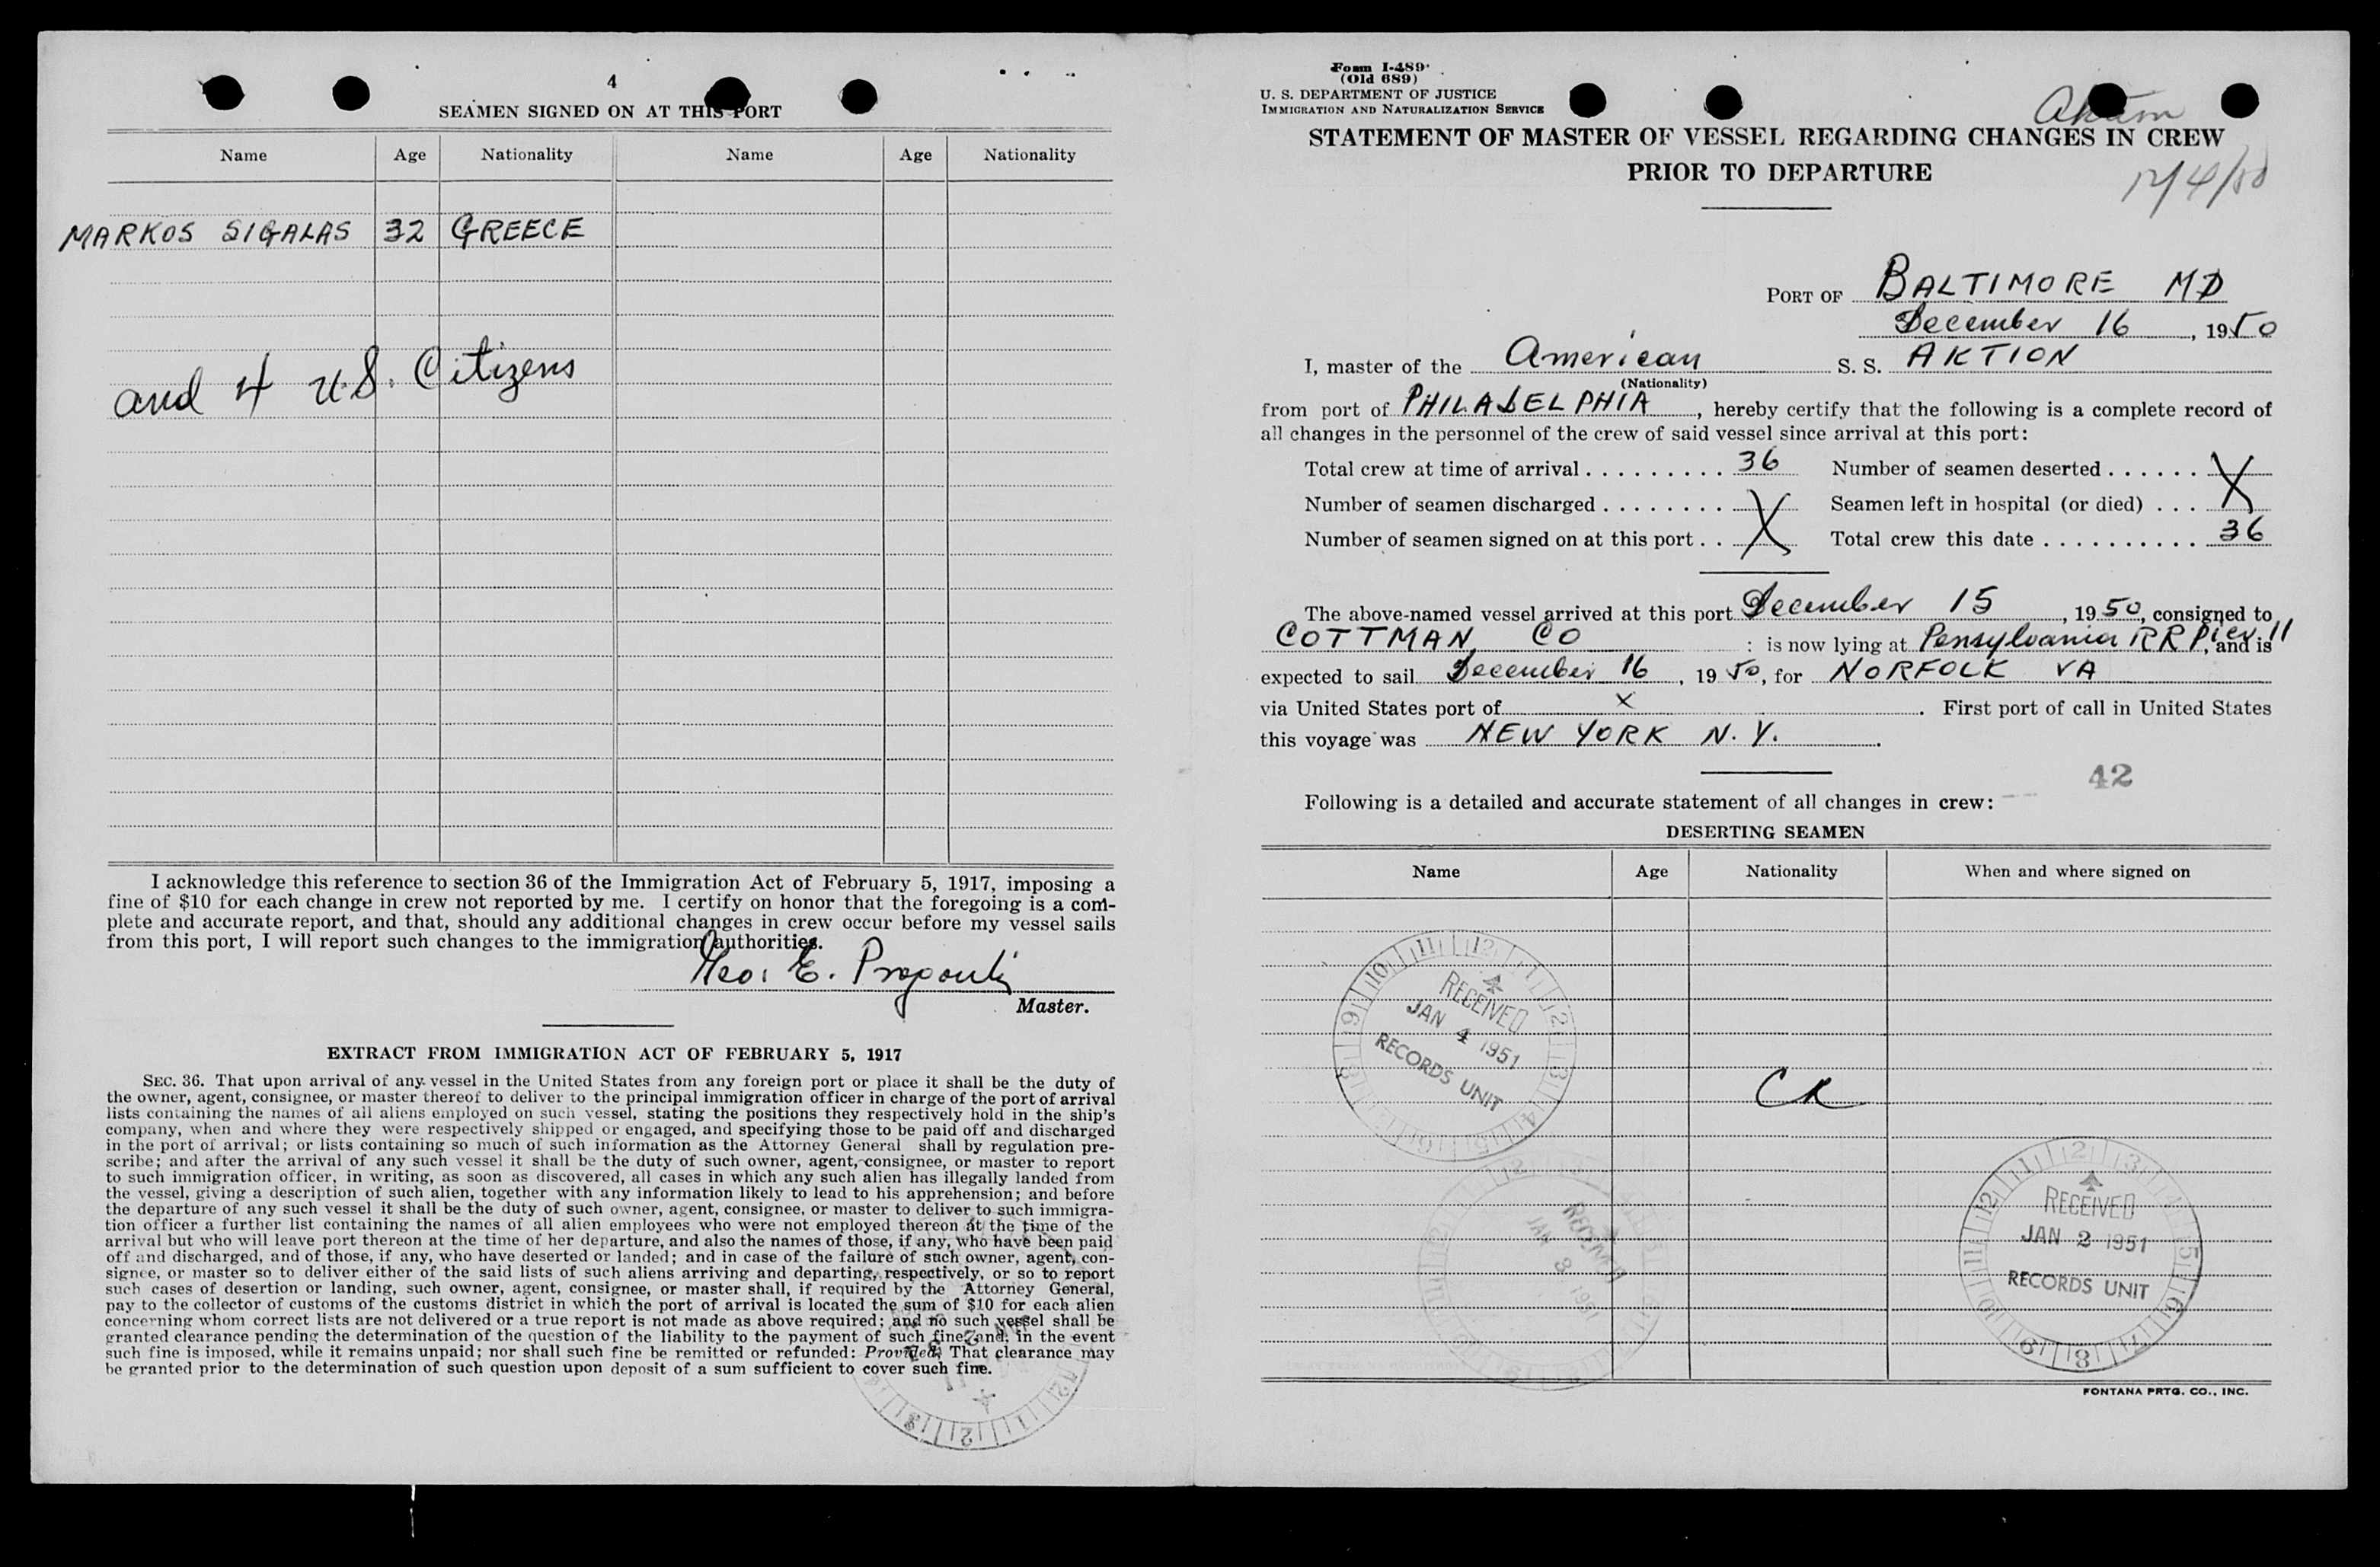 4
SEAMEN SIGNED ON AT THIS PORT
Name Age Nationality Name Age Nationality
MARKOS SIGALAS 32 GREECE
and 4 U.S. Citizens
I acknowledge this reference to section 36 of the Immigration Act of February 5, 1917, imposing a
fine of $10 for each change in crew not reported by me. I certify on honor that the foregoing is a com-
plete and accurate report, and that, should any additional changes in crew occur before my vessel sails
from this port, I will report such changes to the immigration authorities.
Geo. E.
Master.
EXTRACT FROM IMMIGRATION ACT OF FEBRUARY 5, 1917
SEC. 36. That upon arrival of any vessel in the United States from any foreign port or place it shall be the duty of
the owner, agent, consignee, or master thereof to deliver to the principal immigration officer in charge of the port of arrival
lists containing the names of all aliens employed on such vessel, stating the positions they respectively hold in the ship's
company, when and where they were respectively shipped or engaged, and specifying those to be paid off and discharged
in the port of arrival; or lists containing so much of such information as the Attorney General shall by regulation pre-
scribe; and after the arrival of any such vessel it shall be the duty of such owner, agent, consignee, or master to report
to such immigration officer, in writing, as soon as discovered, all cases in which any such alien has illegally landed from
the vessel, giving a description of such alien, together with any information likely to lead to his apprehension; and before
the departure of any such vessel it shall be the duty of such owner, agent, consignee, or master to deliver to such immigra-
tion officer a further list containing the names of all alien employees who were not employed thereon at the time of the
arrival but who will leave port thereon at the time of her departure, and also the names of those, if any, who have been paid
off and discharged, and of those, if any, who have deserted or landed; and in case of the failure of such owner, agent, con-
signee, or master so to deliver either of the said lists of such aliens arriving and departing, respectively, or so to report
such cases of desertion or landing, such owner, agent, consignee, or master shall, if required by the Attorney General,
pay to the collector of customs of the customs district in which the port of arrival is located the sum of $10 for each alien
concerning whom correct lists are not delivered or a true report is not made as above required; and no such vessel shall be
granted clearance pending the determination of the question of the liability to the payment of such fine, and, in the event
such fine is imposed, while it remains unpaid; nor shall such fine be remitted or refunded: Provided, That clearance may
be granted prior to the determination of such question upon deposit of a sum sufficient to cover such fine.
Form I-489
(Old 689)
U. S. DEPARTMENT OF JUSTICE
IMMIGRATION AND NATURALIZATION SERVICE
STATEMENT OF MASTER OF VESSEL REGARDING CHANGES IN CREW
PRIOR TO DEPARTURE
12/4/50
PORT OF BALTIMORE MD
December 16, 1950
I, master of the American S. S. AKTION
(Nationality)
from port of PHILADELPHIA, hereby certify that the following is a complete record of
all changes in the personnel of the crew of said vessel since arrival at this port:
Total crew at time of arrival . . . . . . . . . 36 Number of seamen deserted . . . . . . X
Number of seamen discharged . . . . . . . . X Seamen left in hospital (or died) . . .
Number of seamen signed on at this port . . Total crew this date . . . . . . . . . . 36
The above-named vessel arrived at this port December 15, 1950, consigned to
COTTMAN CO : is now lying at Pensylvania RR Pier 11, and is
expected to sail December 16, 1950, for NORFOLK VA
via United States port of X. First port of call in United States
this voyage was NEW YORK N.Y.
42
Following is a detailed and accurate statement of all changes in crew:
DESERTING SEAMEN
Name Age Nationality When and where signed on
RECEIVED
JAN 4 1951
RECORDS UNIT
RECEIVED
JAN 3 1951
RECEIVED
JAN 2 1951
RECORDS UNIT
FONTANA PRTG. CO., INC.